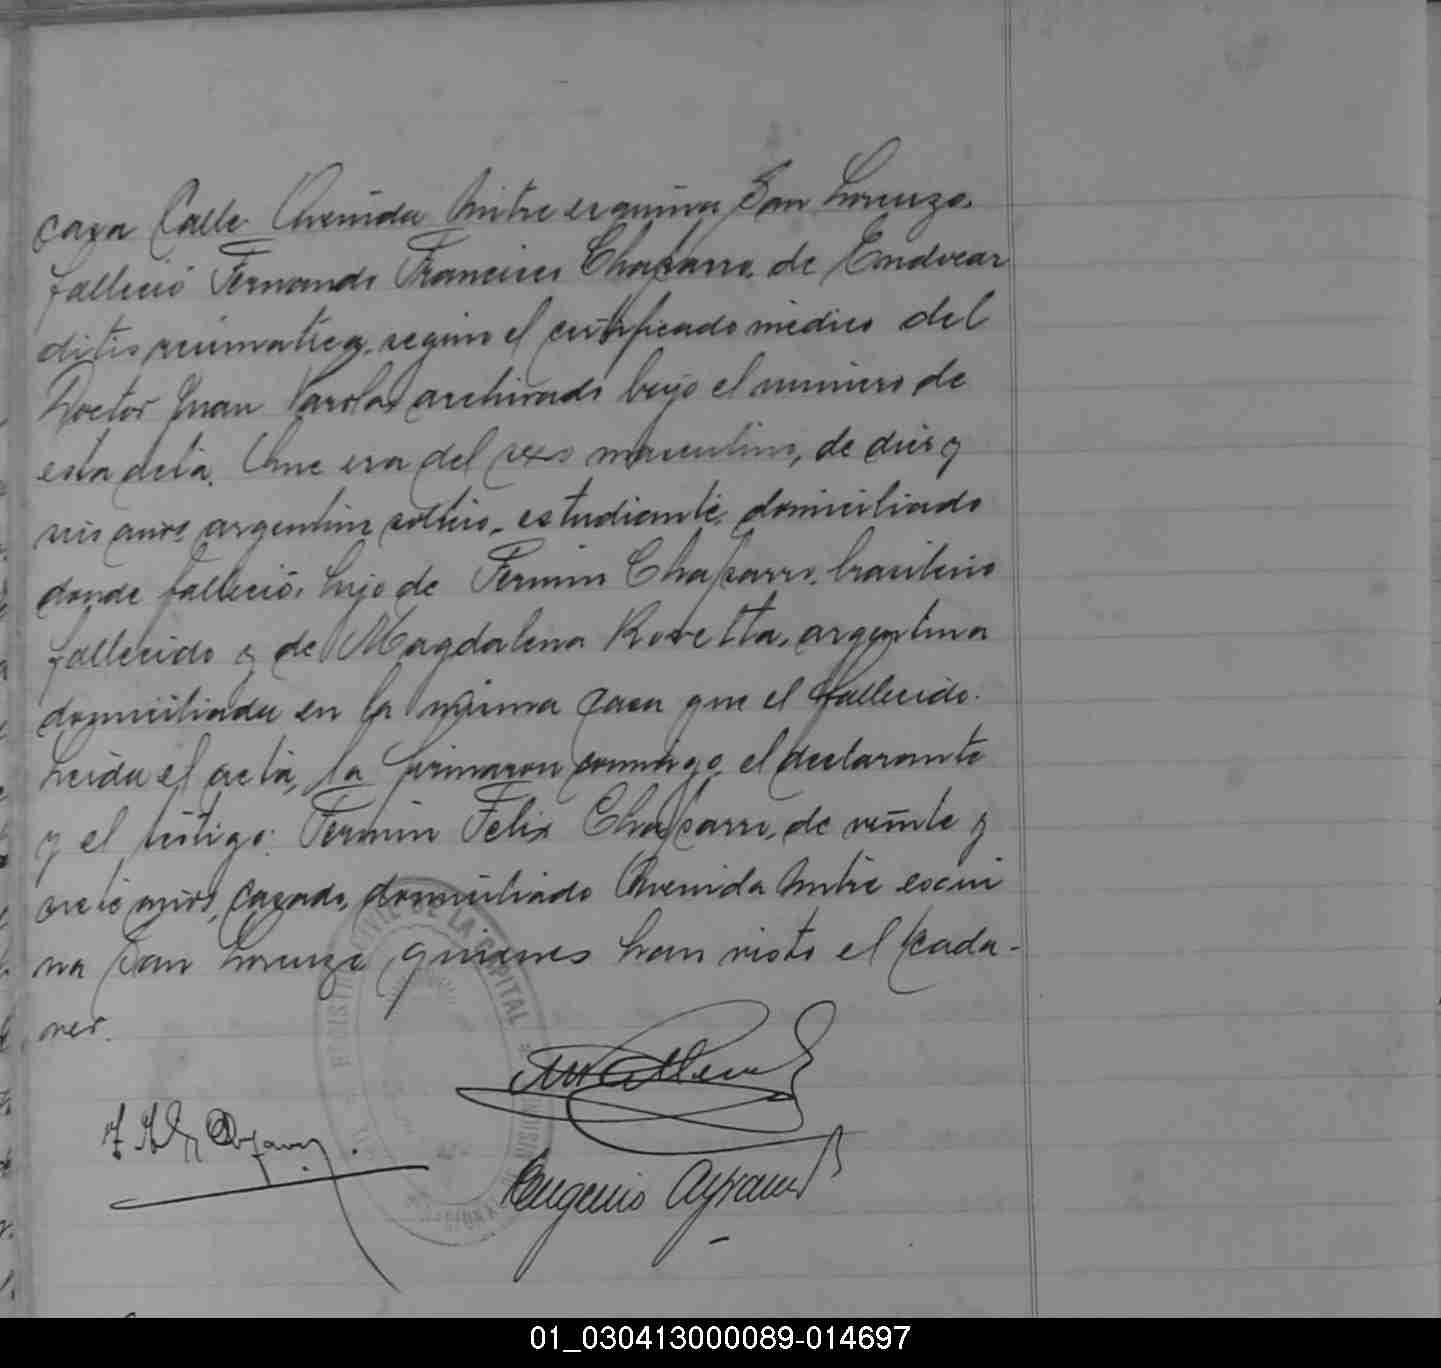 casa Calle Avenida Mitre esquina San Lorenzo,
falleció Fernando Francisco Chaparro, de Endocar
ditis reumatica, segun el certificado médico del
Doctor Juan archivado bajo el numero de
esta acta. Que era del sexo masculino, de diez y
seis años, argentino soltero, estudiante, domiciliado
donde falleció, hijo de Fermin Chaparro, brasileño
fallecido y de Magdalena Rovetta, argentina
domiciliada en la misma casa que el fallecido.
Leida el acta, la firmaron conmigo, el declarante
y el testigo: Fermin Felix Chaparro, de veinte y
siete años, casado, domiciliado Avenida Mitre esqui
na San Lorenzo, quienes han visto el cada-
ver.
REGISTRO CIVIL DE LA CAPITAL
Eugenio
01_030413000089-014697